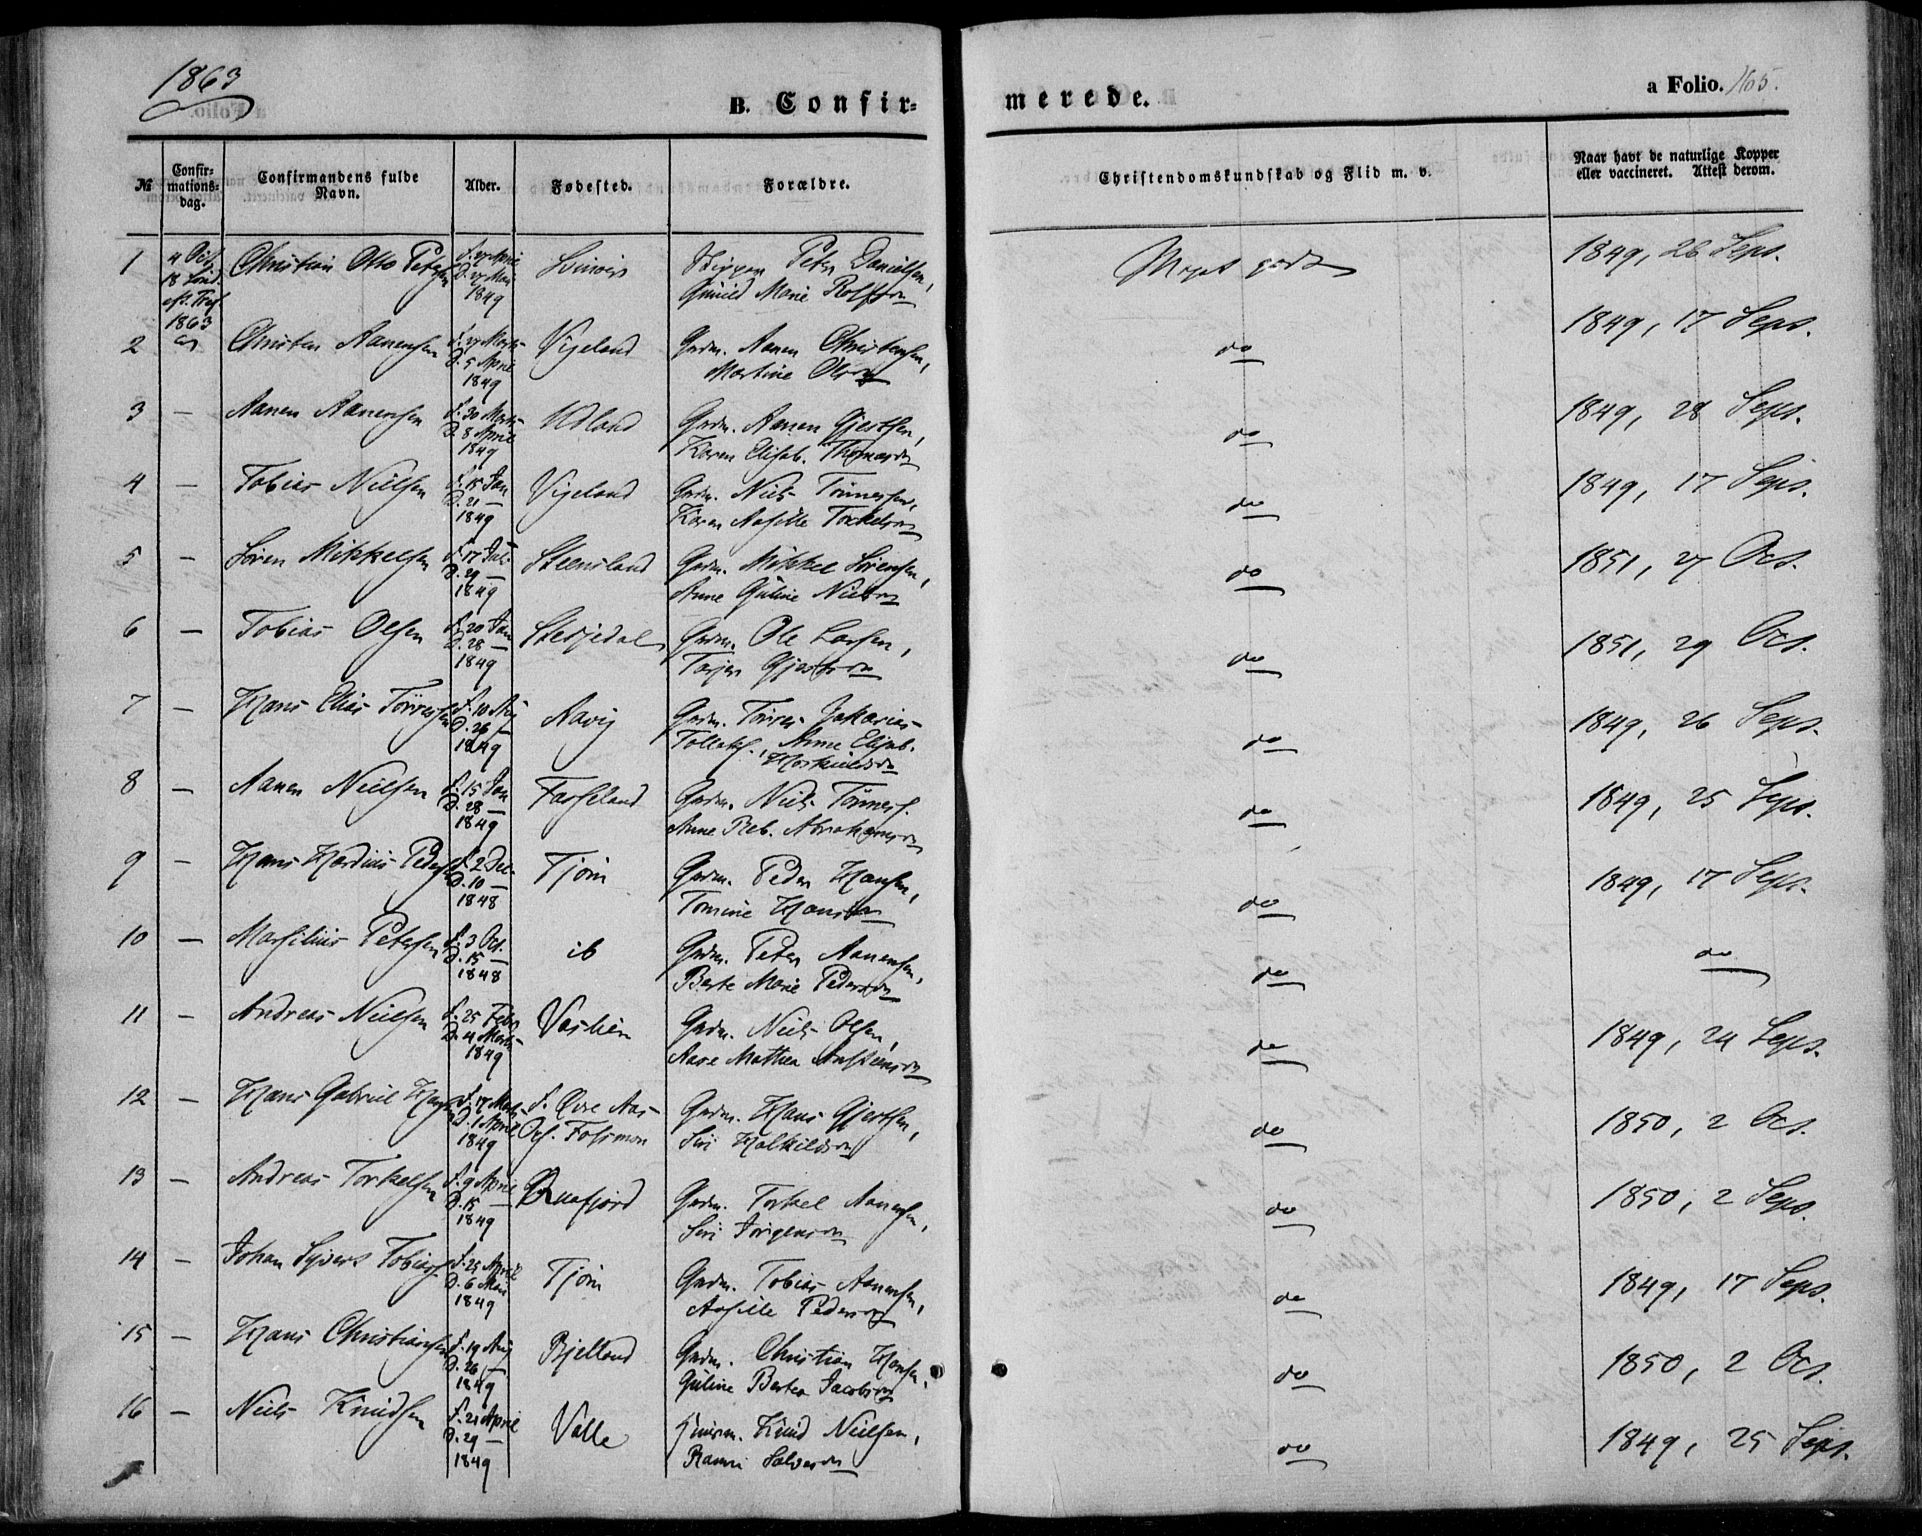 1863
B. Confir=
merede.
a Folio. 165.
№
Confir-
mations-
dag.
Confirmandens fulde
Navn.
Alder.
Fødested.
Forældre.
Christendomskundskab og Flid m. v.
Naar havt de naturlige Kopper
eller vaccineret. Attest derom.
1
4 Oct.
18 Sønd.
eft. Tref.
1863
Christian Otto Petersen
f. 27 April
D. 27 Mai
1849
Svinvig
Skipper Peter Danielsen,
Gunild Marie Rolfsen
Meget godt
1849, 26 Sept.
2
Christen Aanensen
f. 27 Marts
D. 5 April
1849
Vigeland
Grdm. Aanen Christensen,
Martine Olsen
do
1849, 17 Sept.
3 —
Aanen Aanensen
f. 30 Marts
D. 8 April
1849
Udland
Grdm. Aanen Gjertsen,
Karen Elisab. Thomasdr
do
1849, 28 Sept.
4 —
Tobias Nielsen
f. 15 Jan
D. 21 —
1849
Vigeland
Grdm. Niels Tønnesen,
Karen Aasille Torkelsdr
do
1849, 17 Sept.
5 —
Søren Mikkelsen
f. 17 Juli
D. 29 —
1849
Steensland
Grdm. Mikkel Sørensen,
Anne Guline Nielsdr
do
1851, 27 Oct.
6 —
Tobias Olsen
f. 20 Jan
D. 28 —
1849
Grdm. Ole Larsen,
Tarjer Gjertsdr
do
1851, 29 Oct.
7 —
Hans Elias Tørresen
f. 10 Aug
D. 26 —
1849
Aavig
Grdm. Tørres Zakarias
Tollaks., Anne Elisab.
do
1849, 26 Sept.
8 —
Aanen Nielsen
f. 15 Jan
D. 28 —
1849
Fasseland
Grdm. Niels Tønnes.
Anne Reb. Abrahamsdr
do
1849, 25 Sept.
9 —
Hans Mardius Peders.
f. 2 Dec.
D. 10 —
1848
Tjøm
Grdm. Peder Hansen,
Tomine Hansdr
do
1849, 17 Sept.
10 —
Marselius Petersen
f. 3 Oct.
D. 15 —
1848
ib
Grdm. Peter Aanensen,
Berte Marie Pedersdr
do
do
11 —
Andreas Nielsen
f. 25 Febr
D. 4 Marts
1849
Vaslien
Grdm. Niels Olsen,
Aase Mathea
do
1849, 24 Sept.
12 —
Hans Gabriel Hans.
f. 17 Marts
D. 1 April
1849
f. Øvre Aas
Grdm. Hans Gjertsen,
Siri
do
1850, 2 Oct.
13 —
Andreas Torkelsen
f. 9 April
D. 15 —
1849
Grdm. Torkel Aanensen,
Siri Jørgensdr
do
1850, 2 Sept.
14 —
Johan Syvert Tobias.
f. 25 April
D. 6 Mai
1849
Tjøm
Grdm. Tobias Aanensen,
Aasille Pedersdr
do
1849, 17 Sept.
15 —
Hans Christiansen
f. 19 Aug
D. 26 —
1849
Bjelland
Grdm. Christian Hansen,
Guline Bertea Jacobsdr
do
1850, 2 Oct.
16 —
Niels Knudsen
f. 21 April
D. 29 —
1849
Valle
Huusm. Knud Nielsen,
Ramvi Salvesdr
do
1849, 25 Sept.